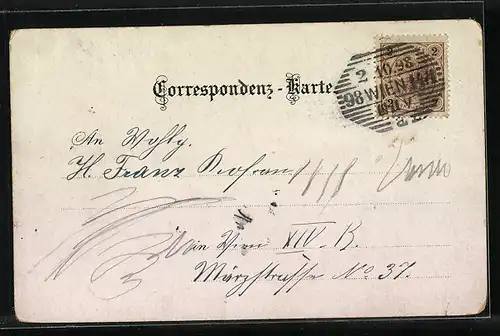 Correspondenz-Karte.
2
2 10 98
98 WIEN
An Wohlg.
H. Franz
in Wien XIV. B.
Märzstrasse No 37.